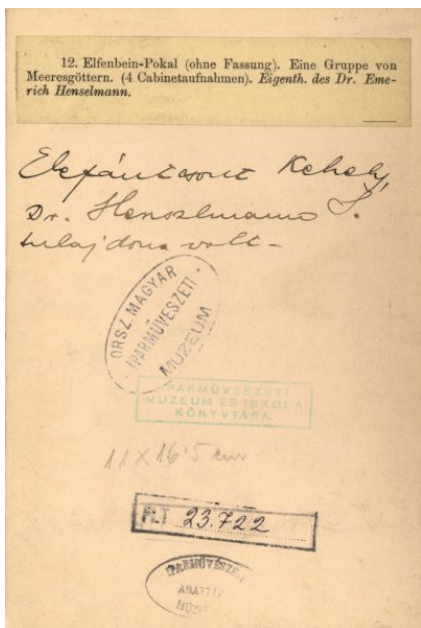 12. Elfenbein-Pokal (ohne Fassung). Eine Gruppe von
Meeresgöttern. (4 Cabinetaufnahmen). Eigenth. des Dr. Eme-
rich Henselmann.
Elefántcsont Kehely,
Dr. Henszlmann I.
tulajdona volt -
ORSZ. MAGYAR
IPARMŰVÉSZETI
MUZEUM
IPARMŰVÉSZETI
MUZEUM ÉS ISKOLA
KÖNYVTÁRA
11 X 16˙5 cm
FLT 23.722
IPARMŰVÉSZETI
ADATTÁR